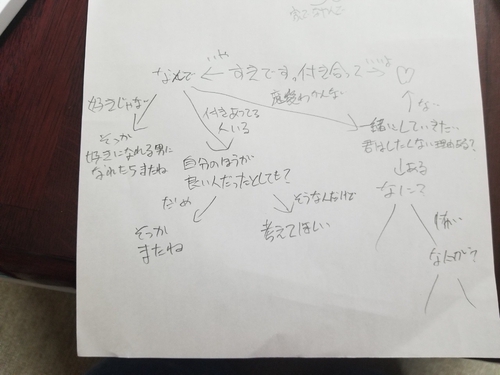 いや
いいよ
なんで ← すきです。付き合って → ♡
好きじゃない
付きあってる
人いる
感覚わかんない
ない
そっか
好きになれる男に
なれたらまたね
自分のほうが
良い人だったとしても?
一緒にしていきたい
君はしたくない理由ある?
ある
なにこ
だめ
そうなんだけど
そっか
またね
考えてほしい
怖い
なにが?